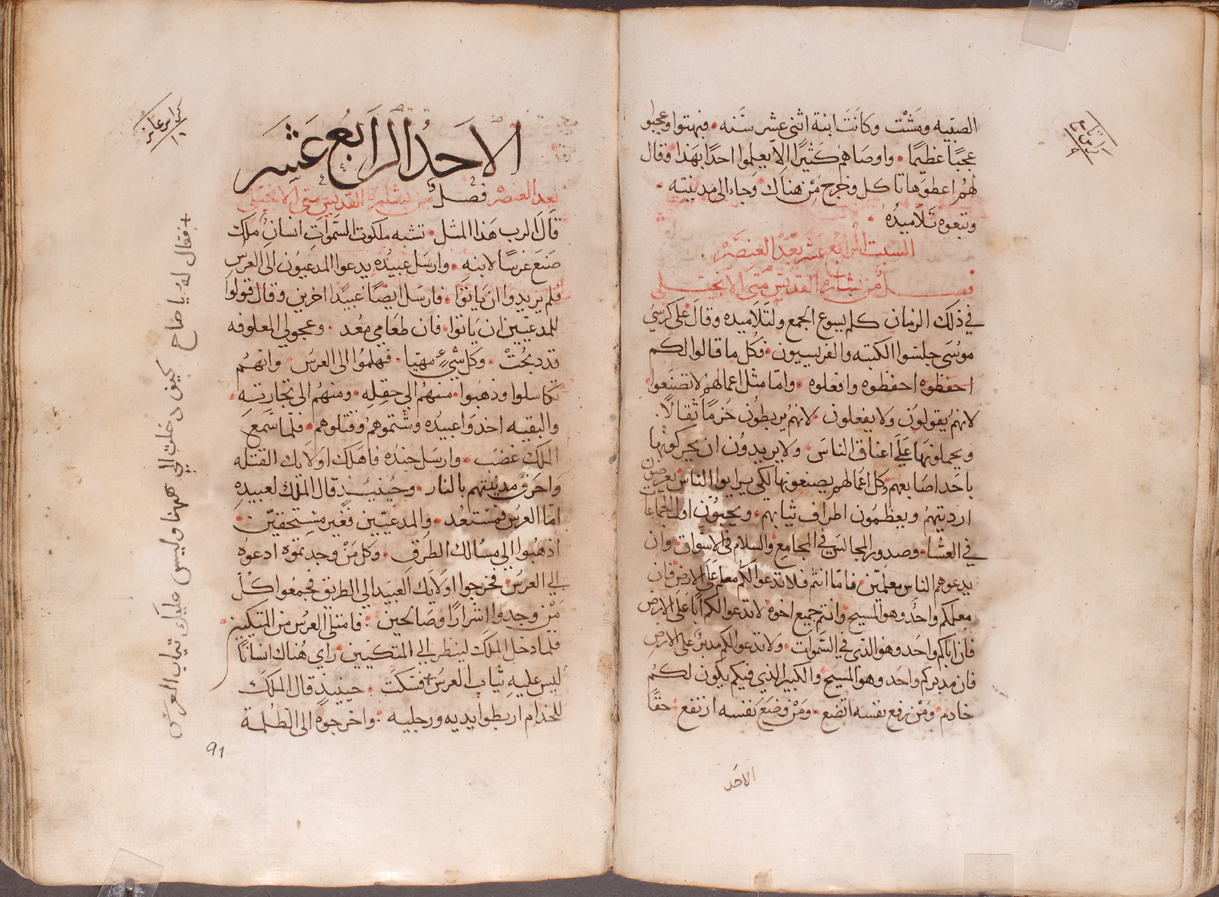 كراس تاسع
٩
الصبيه ومشت وكانت ابنة اثنى عشر سنه فبهتوا وعجبو
عجبًا عظيمًا واوصاهم كثيرًا الا يعلموا احدًا بهذا فقال
لهم اعطوها تاكل وخرج من هناك وجاء الى مدينته
وتبعوه تلاميذه
السبت الرابع عشر بعد العنصره
فصل من بشارة القديس متى الانجيلي
في ذلك الزمان كلم يسوع الجمع ولتلاميذه وقال على كرسي
موسى جلسوا الكتبه والفريسيون فكل ما قالوا لكم
احفظوه احفظوه وافعلوه واما مثل اعمالهم لا تصنعوا
لانهم يقولون ولا يفعلون لانهم يربطون حُزمًا ثقالًا
ويحملونها على اعناق الناس ولا يريدون ان يحركونها
باحد اصابعهم وكل اعمالهم يصنعونها لكي يراووا الناس يعرضون
ارديتهم ويعظمون اطراف ثيابهم ويحبون اول الجماعات
في العشاء وصدور المجالس في المجامع والسلام في الاسواق وان
يدعوهم الناس معلمين فاما انتم فلا تدعوا لكم معلم على الارض فان
معلمكم واحد وهو المسيح وانتم جميع اخوه لا تدعوا لكم ابًا على الارض
فان اباكم واحد وهو الذي في السموات ولا تدعوا لكم مدبر على الارض
فان مدبركم واحد وهو المسيح والكبير الذي فيكم يكون لكم
خادم ومن رفع نفسه اتضع ومن وضع نفسه ارتفع حقًا
الاحد
كراس عاشر
١٠
الاحد الرابع عشر
بعد العنصره فصل من بشارة القديس متى الانجيلي
قال الرب هذا المثل تشبه ملكوت السموات انسان ملك
صنع عرسا لابنه وارسل عبيده يدعوا المدعيون الى العرس
فلم يريدوا ان ياتوا فارسل ايضًا عبيدًا اخرين وقال قولوا
للمدعيين ان ياتوا فان طعامي معد وعجولي المعلوفه
قد ذبحت وكل شيء مهيا فهلموا الى العرس وانهم
تكاسلوا وذهبوا منهم الى حقله ومنهم الى تجارته
والبقيه اخذوا عبيده وشتموهم وقتلوهم فلما سمع
الملك غضب وارسل جنده فاهلك اولايك القتله
واحرق مدينتهم بالنار وحينيذ قال الملك لعبيده
اما العرس فمستعد والمدعيين فغير مستحقين
اذهبوا الى مسالك الطرق وكل من وجدتموه ادعوه
الى العرس فخرجوا اولايك العبيد الى الطريق فجمعوا كل
من وجدوا اشرارًا وصالحين فامتلى العرس من المتكيين
فلما دخل الملك لينظر الى المتكيين راي هناك انسانًا
ليس عليه ثياب العرس + فسكت حينيذ قال الملك
للخدام اربطوا يديه ورجليه واخرجوه الى الظلمة
+ فقال له يا صاح كيف دخلت الي ههنا وليس عليك ثياب العرس
91